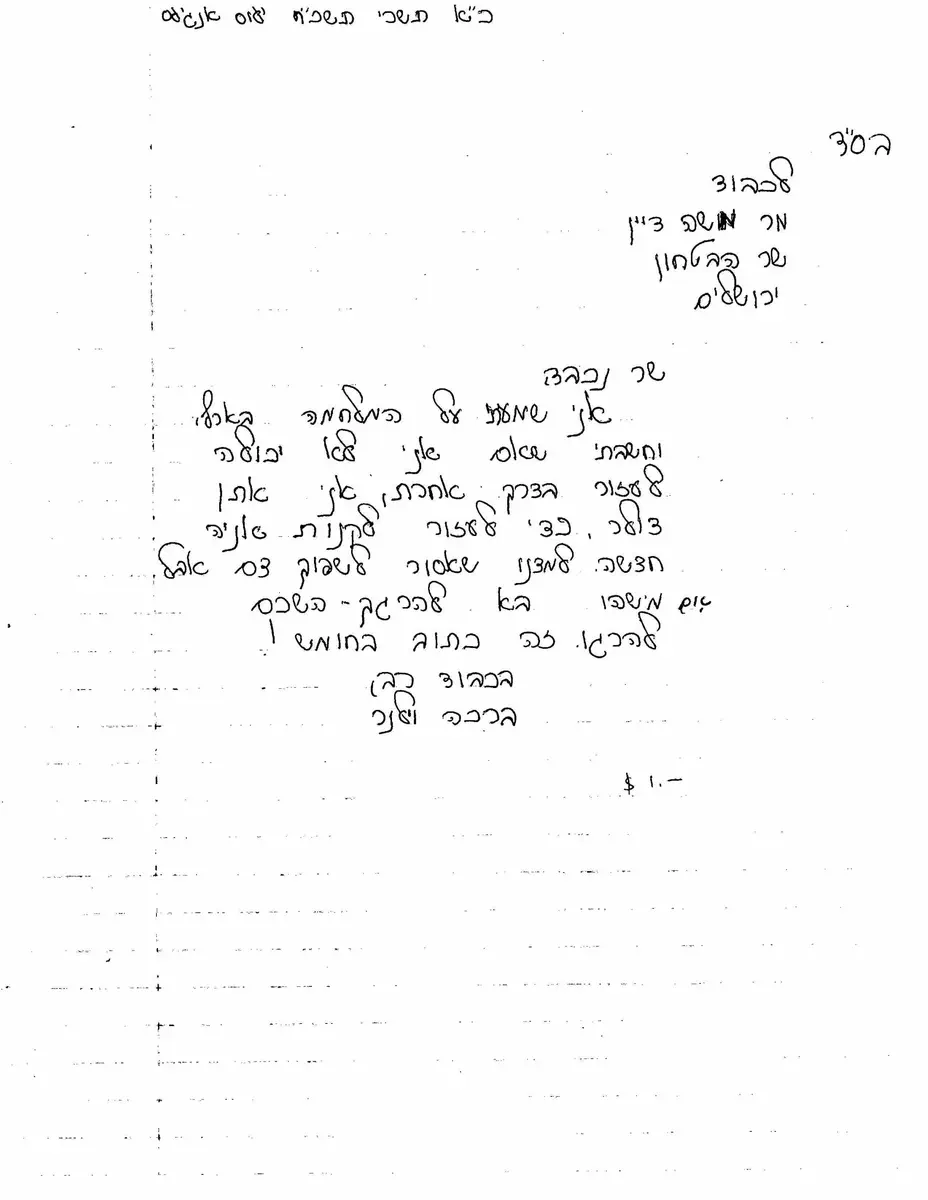 כ"א תשרי תשכ"ח לוס אנג'עס
בס"ד
לכבוד
מר משה דיין
שר הבטחון
ירושלים
שר נכבד
אני שמעתי על המלחמה בארץ.
וחשבתי שאם אני לא יכולה
לעזור בדרך אחרת, אני אתן
דולר, כדי לעזור לקנות אניה
חדשה. למדנו שאסור לשפוך דם אבל
אם מישהו בא להרגך - השכם
להרגו. זה כתוב בחומש!
בכבוד רב,
ברכה וילנר
$ 1.-